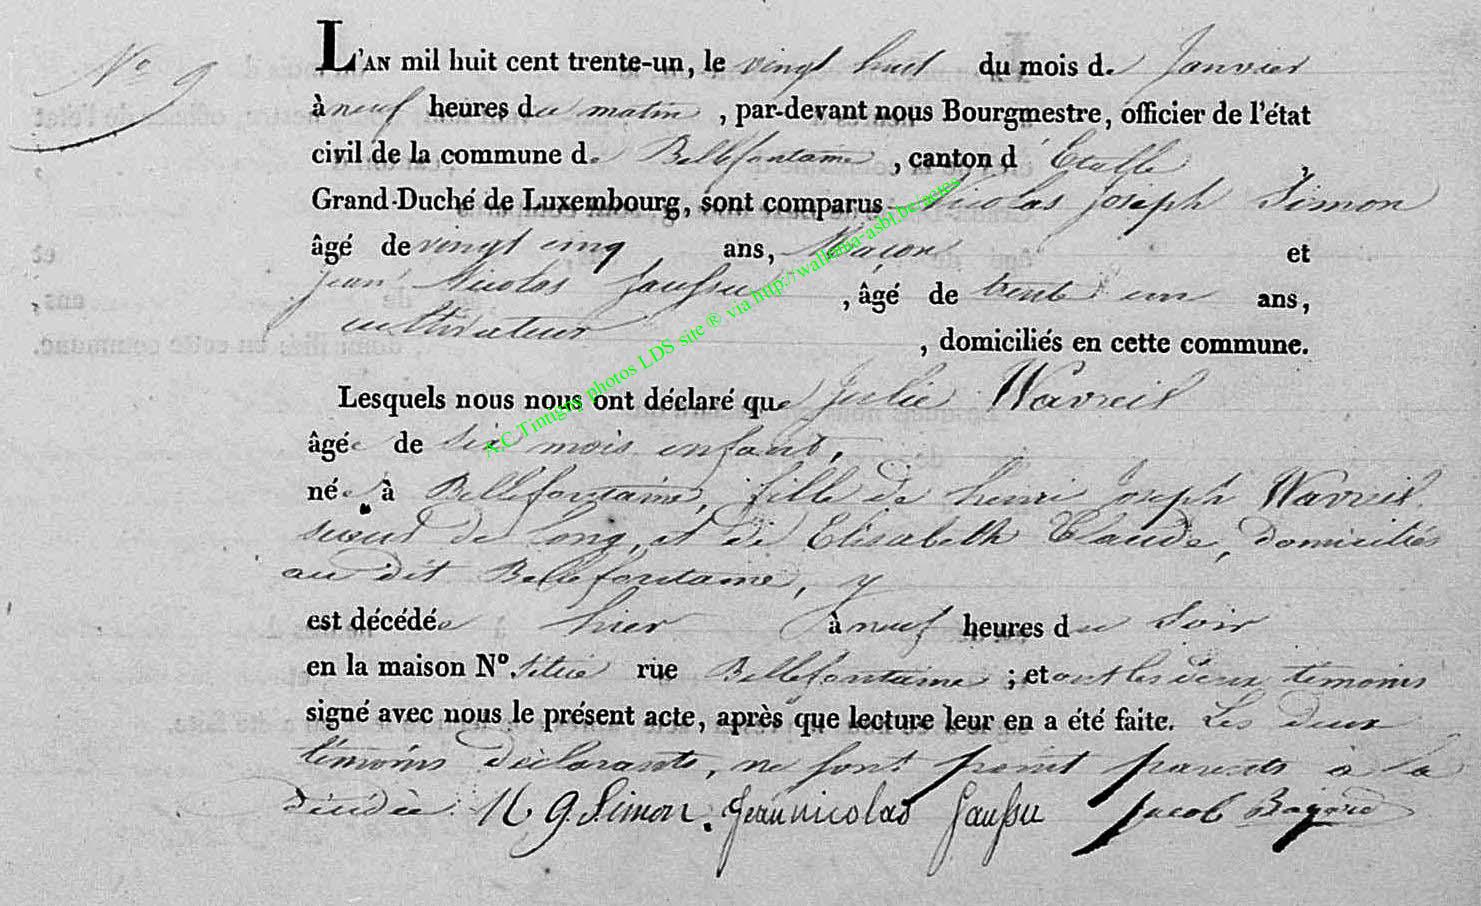 N° 9
L'AN mil huit cent trente-un, le vingt huit du mois de Janvier
à neuf heures du matin, par-devant nous Bourgmestre, officier de l'état
civil de la commune de Bellefontaine, canton d'Etalle,
Grand-Duché de Luxembourg, sont comparus Nicolas Joseph Simon
âgé de vingt cinq ans, Maçon et
jean Nicolas Saussu, âgé de trente un ans,
cultivateur, domiciliés en cette commune.
Lesquels nous nous ont déclaré que Julie Wavreil
âgée de six mois enfant,
née à Bellefontaine, fille de henri Joseph Wavreil
de long, et de Elisabeth Claude, domiciliés
au dit Bellefontaine, y
est décédée hier à neuf heures du Soir
en la maison N°. située rue Bellefontaine ; et ont les deux témoins
signé avec nous le présent acte, après que lecture leur en a été faite. Les deux
témoins déclarants, ne sont point parents à la
décédée. N J Simon. Jean nicolas Saussu Jacob Bayard
A.C.Tintigny photos LDS site ® via http://wallonia-asbl.be/actes